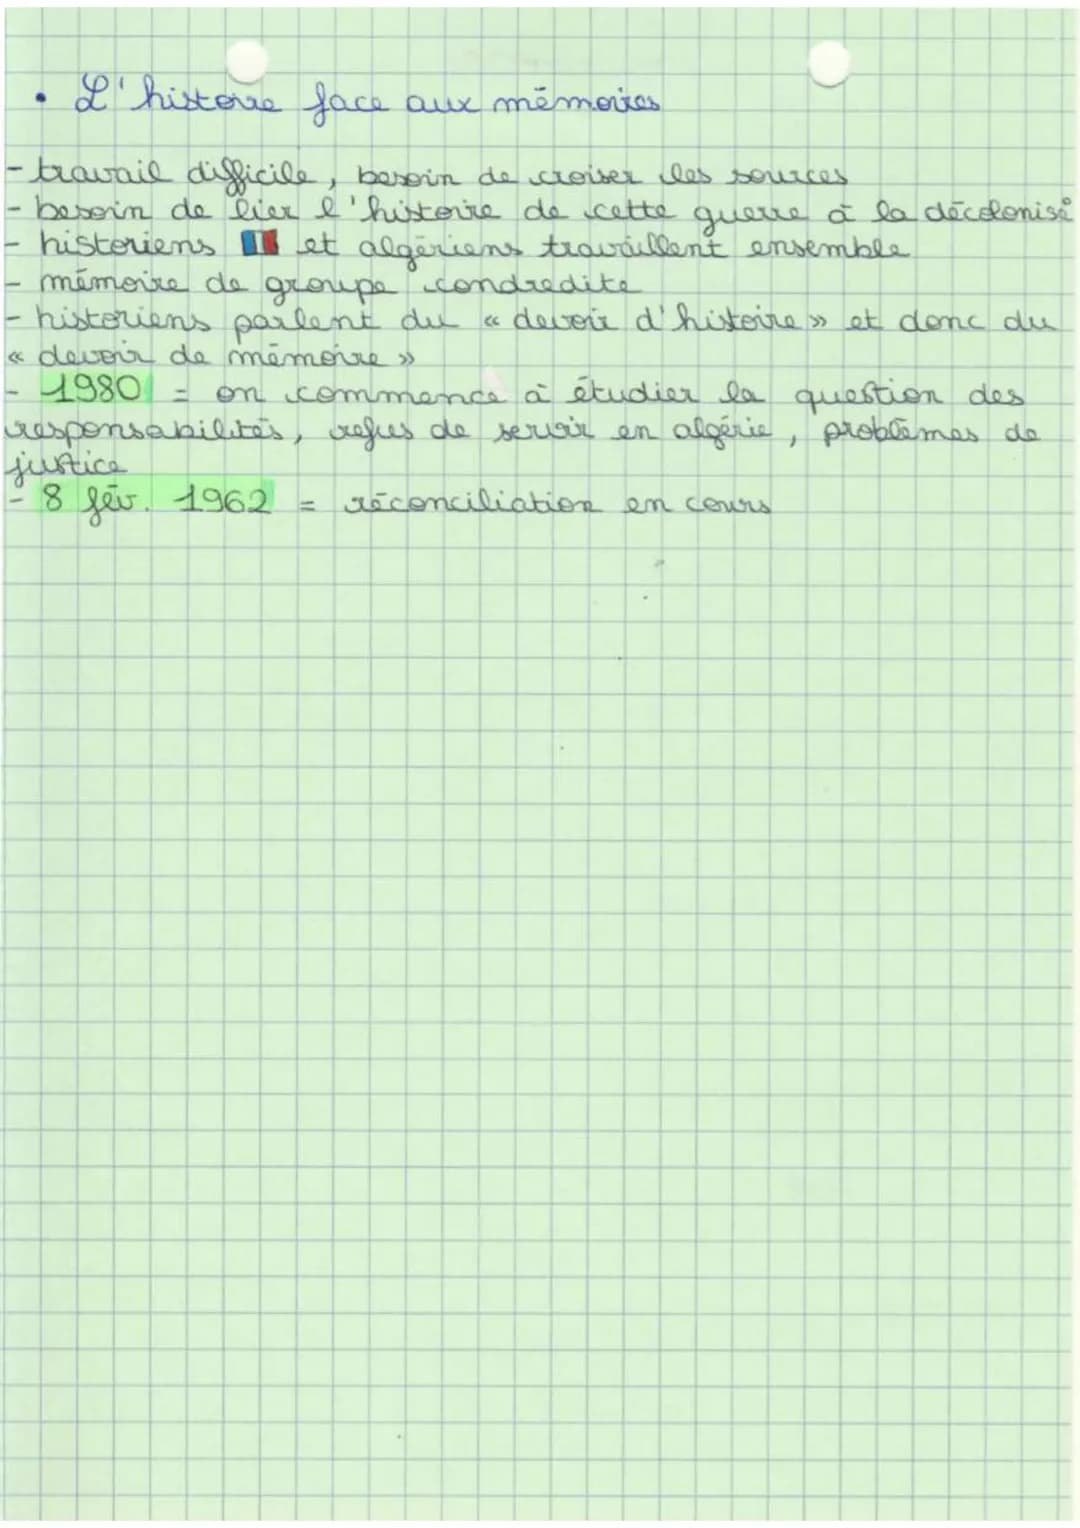 • L'histoire face aux mémoires
- travail difficile, besoin de croiser les sources
- besoin de lier l'histoire de cette guerre à la décolonisº
- historiens 🇫🇷 et algériens travaillent ensemble
- mémoire de groupe condredite
- historiens parlent du « devoir d'histoire » et donc du
« devoir de mémoire »
- 1980 = on commence à étudier la question des
responsabilités, refus de servir en algérie, problèmes de
justice
- 8 fév. 1962 = réconciliation en cours